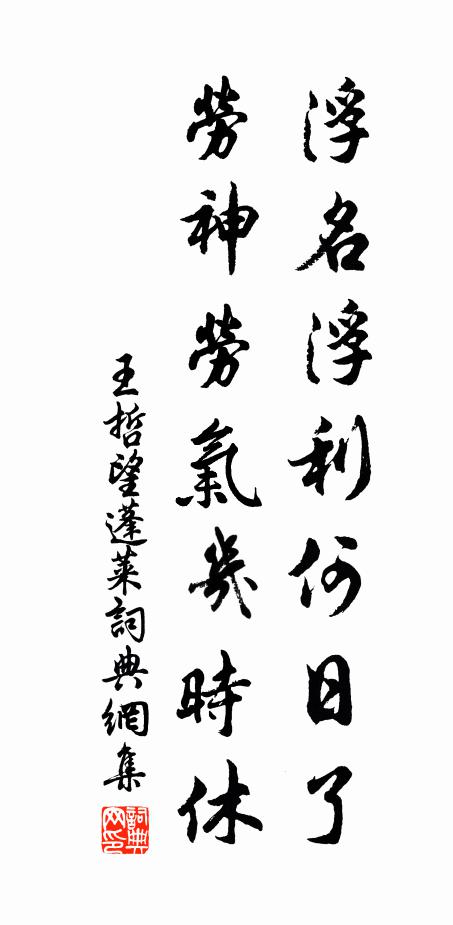 浮名浮利何日了
勞神勞氣幾時休
王哲望蓬萊詞典網集
詞典网印